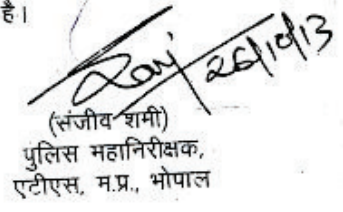 है।
26/10/13
(संजीव शमी)
पुलिस महानिरीक्षक,
एटीएस, म.प्र., भोपाल